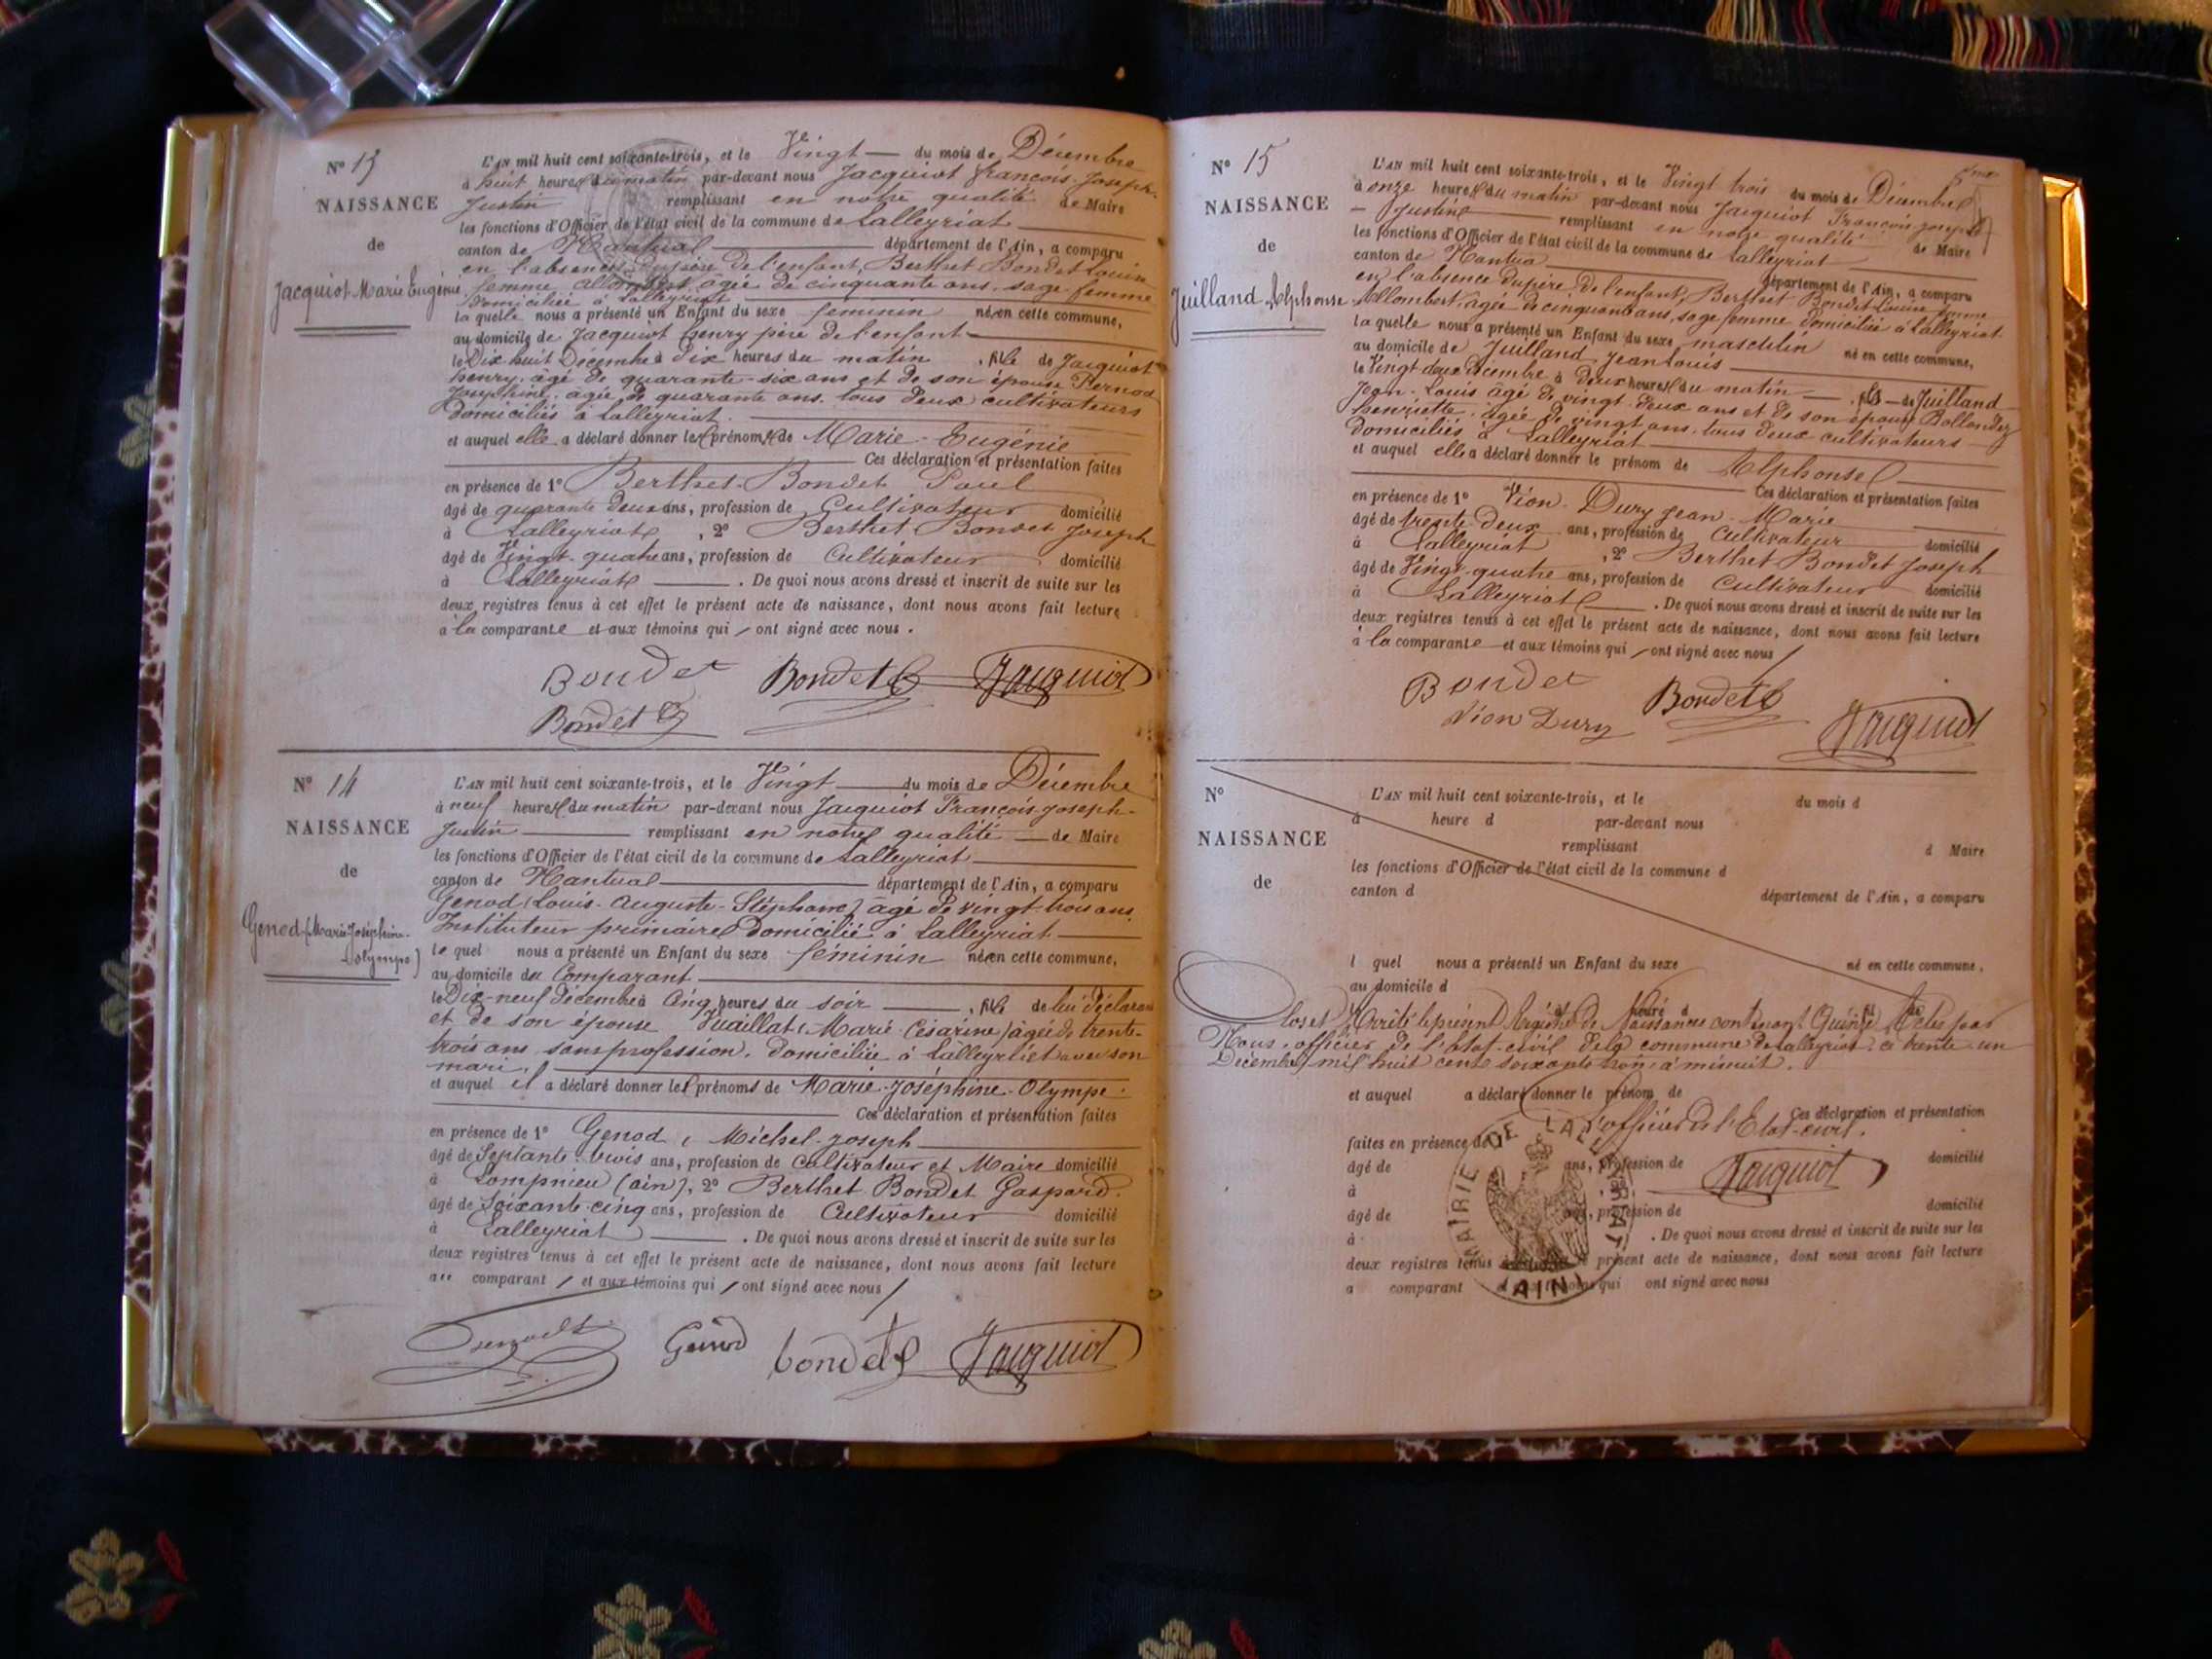 N° 13
NAISSANCE
de
Jacquiot Marie Eugénie
L'AN mil huit cent soixante-trois, et le Vingt du mois de Décembre
à huit heures du matin par-devant nous Jacquiot françois-Joseph-
Justin remplissant en notre qualité de Maire
les fonctions d'Officier de l'état civil de la commune de Lalleyriat
canton de Nantua département de l'Ain, a comparu
en l'absence du père de l'enfant, Berthet Bondet Louise
femme Allombert, âgée de cinquante ans, sage femme
domiciliée à Lalleyriat
la quelle nous a présenté un Enfant du sexe féminin né en cette commune,
au domicile de Jacquiot henry père de l'enfant
le Dix huit Décembre à dix heures du matin, fille de Jacquiot
henry, âgé de quarante-six ans et de son épouse Pernod
Joséphine, âgée de quarante ans, tous deux cultivateurs
domiciliés à Lalleyriat.
et auquel elle a déclaré donner les prénoms de Marie-Eugénie
Ces déclaration et présentation faites
en présence de 1° Berthet-Bondet Paul
âgé de quarante deux ans, profession de Cultivateur domicilié
à Lalleyriat, 2° Berthet Bondet Joseph
âgé de Vingt-quatre ans, profession de Cultivateur domicilié
à Lalleyriat. De quoi nous avons dressé et inscrit de suite sur les
deux registres tenus à cet effet le présent acte de naissance, dont nous avons fait lecture
à la comparante et aux témoins qui ont signé avec nous.
Bondet Bondet Jacquiot
Bondet
N° 14
NAISSANCE
de
Genod (Marie-Joséphine-
Olympe)
L'AN mil huit cent soixante-trois, et le Vingt du mois de Décembre
à neuf heures du matin par-devant nous Jacquiot François-Joseph-
Justin remplissant en notre qualité de Maire
les fonctions d'Officier de l'état civil de la commune de Lalleyriat
canton de Nantua département de l'Ain, a comparu
Genod (Louis-Auguste-Stéphane) âgé de vingt-trois ans,
Instituteur primaire domicilié à Lalleyriat
le quel nous a présenté un Enfant du sexe féminin né en cette commune,
au domicile du Comparant
le Dix-neuf Décembre à cinq heures du soir, fille de lui déclarant
et de son épouse Vuaillat (Marie-Césarine) âgée de trente-
trois ans, sans profession, domiciliée à Lalleyriat avec son
mari,
et auquel il a déclaré donner les prénoms de Marie-Joséphine-Olympe.
Ces déclaration et présentation faites
en présence de 1° Genod, Michel-Joseph
âgé de Septante-trois ans, profession de Cultivateur et Maire domicilié
à Lompnieu (ain), 2° Berthet Bondet Gaspard.
âgé de Soixante-cinq ans, profession de Cultivateur domicilié
à Lalleyriat. De quoi nous avons dressé et inscrit de suite sur les
deux registres tenus à cet effet le présent acte de naissance, dont nous avons fait lecture
au comparant et aux témoins qui ont signé avec nous
Genod bondet Jacquiot
N° 15
NAISSANCE
de
Juilland Alphonse
L'AN mil huit cent soixante-trois, et le Vingt trois du mois de Décembre
à onze heures du matin par-devant nous Jacquiot François-Joseph
Justin remplissant en notre qualité de Maire
les fonctions d'Officier de l'état civil de la commune de Lalleyriat
canton de Nantua département de l'Ain, a comparu
en l'absence du père de l'enfant, Berthet Bondet Louise femme
Allombert, âgée de cinquante ans, sage femme domiciliée à Lalleyriat.
la quelle nous a présenté un Enfant du sexe masculin né en cette commune,
au domicile de Juilland Jean Louis
le Vingt deux Décembre à deux heures du matin, fils de Juilland
Jean-Louis âgé de vingt-deux ans et de son épouse Bollandez
henriette, âgée de vingt ans, tous deux cultivateurs
domiciliés à Lalleyriat
et auquel elle a déclaré donner le prénom de Alphonse
Ces déclaration et présentation faites
en présence de 1° Vion-Dury Jean-Marie
âgé de trente deux ans, profession de Cultivateur domicilié
à Lalleyriat, 2° Berthet Bondet Joseph
âgé de Vingt-quatre ans, profession de Cultivateur domicilié
à Lalleyriat. De quoi nous avons dressé et inscrit de suite sur les
deux registres tenus à cet effet le présent acte de naissance, dont nous avons fait lecture
à la comparante et aux témoins qui ont signé avec nous
Bondet Bondet
Vion Dury Jacquiot
N°
NAISSANCE
de
L'AN mil huit cent soixante-trois, et le du mois d
à heure d par-devant nous
remplissant d Maire
les fonctions d'Officier de l'état civil de la commune d
canton d département de l'Ain, a comparu
l quel nous a présenté un Enfant du sexe né en cette commune,
au domicile d
Clos et Arrêté le présent Registre de Naissances contenant Quinze Actes par
Nous, officier de l'état-civil de la commune de Lalleyriat, ce trente-un
Décembre mil huit cent soixante trois à minuit.
et auquel a déclaré donner le prénom de
Ces déclaration et présentation
L'officier de l'Etat-civil.
faites en présence de 1°
âgé de ans, profession de domicilié
Jacquiot
à
âgé de ans, profession de domicilié
à . De quoi nous avons dressé et inscrit de suite sur les
deux registres tenus à cet effet le présent acte de naissance, dont nous avons fait lecture
a comparant et aux témoins qui ont signé avec nous
MAIRIE DE LALLEYRIAT
(AIN)